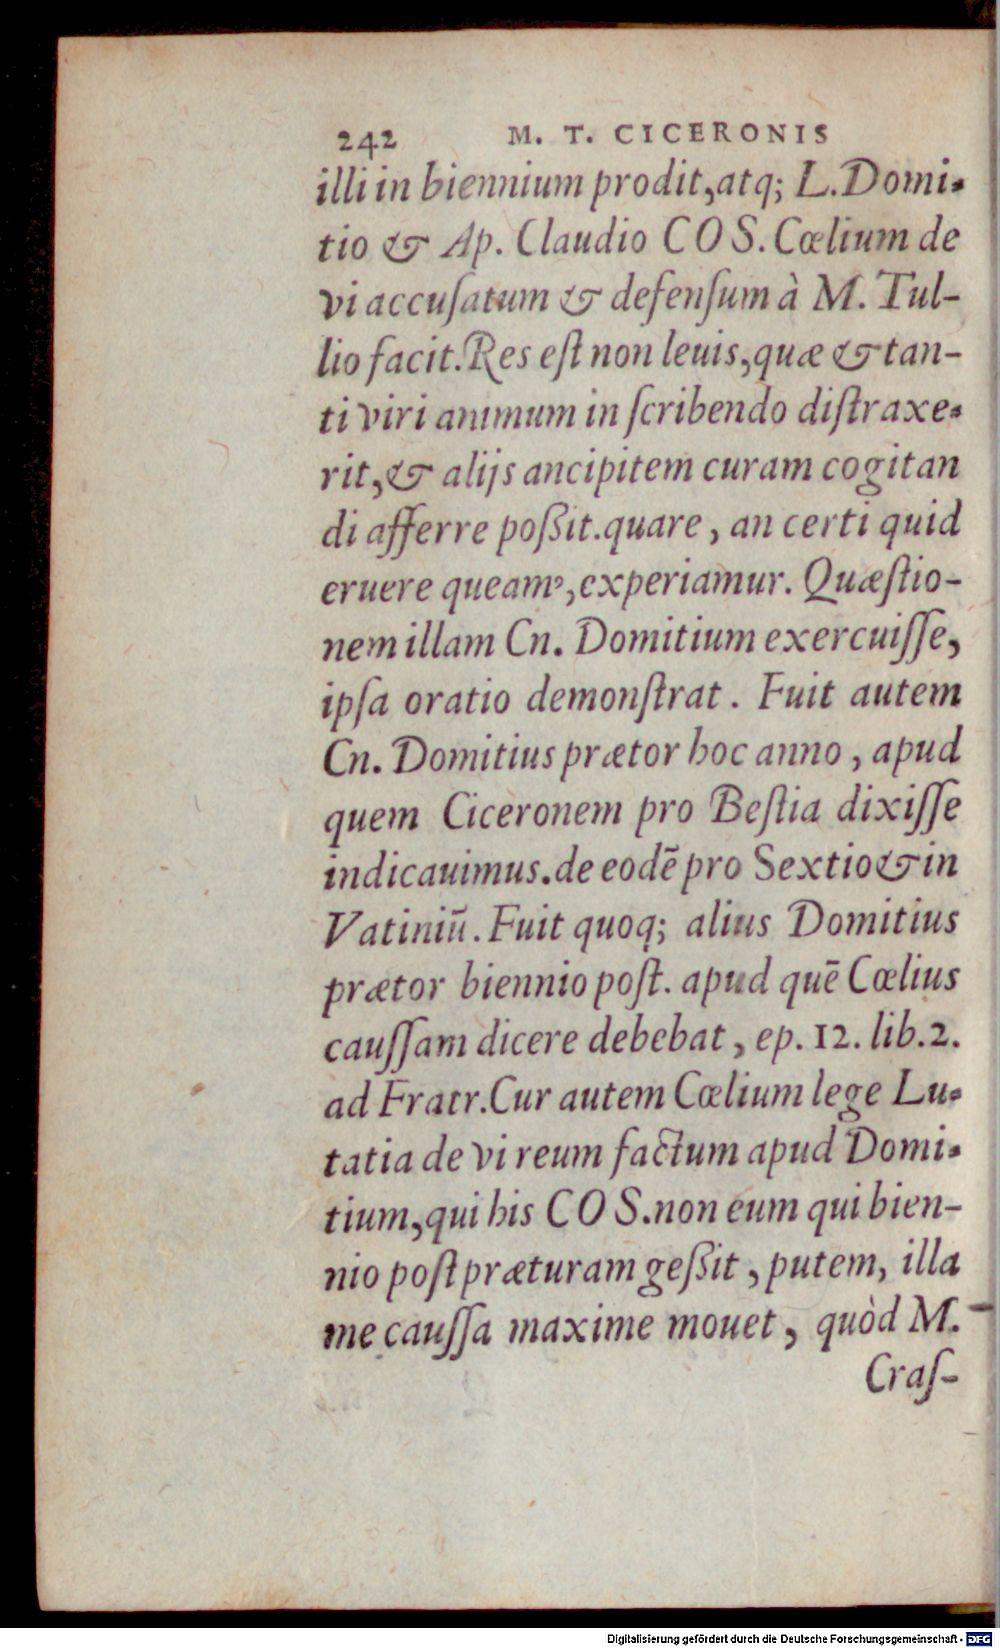 242 M. T. CICERONIS
illi in biennium prodit, atq; L. Domi-
tio & Ap. Claudio COS. Cœlium de
vi accuſatum & defenſum à M. Tul-
lio facit. Res eſt non leuis, quæ & tan-
ti viri animum in ſcribendo diſtraxe-
rit, & alijs ancipitem curam cogitan
di afferre poßit. quare, an certi quid
eruere queamꝰ, experiamur. Quæſtio-
nem illam Cn. Domitium exercuiſſe,
ipſa oratio demonſtrat. Fuit autem
Cn. Domitius prætor hoc anno, apud
quem Ciceronem pro Beſtia dixiſſe
indicauimus. de eodẽ pro Sextio & in
Vatiniũ. Fuit quoq; alius Domitius
prætor biennio poſt. apud quẽ Cœlius
cauſſam dicere debebat, ep. 12. lib. 2.
ad Fratr. Cur autem Cœlium lege Lu-
tatia de vi reum factum apud Domi-
tium, qui his COS. non eum qui bien-
nio poſt præturam geßit, putem, illa
me cauſſa maxime mouet, quòd M.
Craſ-
Digitalisierung gefördert durch die Deutsche Forschungsgemeinschaft - DFG